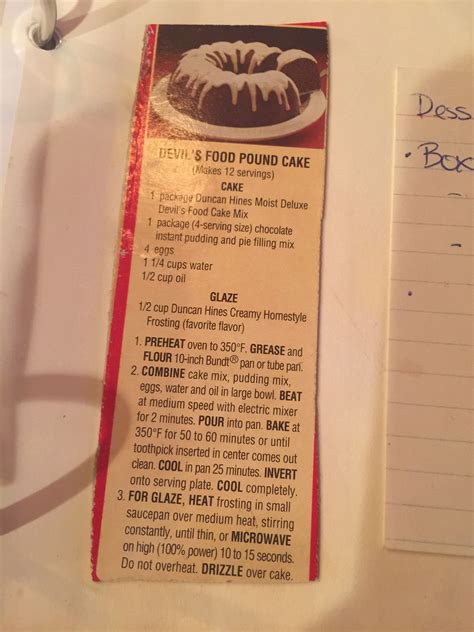 DEVIL'S FOOD POUND CAKE
(Makes 12 servings)
CAKE
1 package Duncan Hines Moist Deluxe
Devil's Food Cake Mix
1 package (4-serving size) chocolate
instant pudding and pie filling mix
4 eggs
1 1/4 cups water
1/2 cup oil
GLAZE
1/2 cup Duncan Hines Creamy Homestyle
Frosting (favorite flavor)
1. PREHEAT oven to 350°F. GREASE and
FLOUR 10-inch Bundt® pan or tube pan.
2. COMBINE cake mix, pudding mix,
eggs, water and oil in large bowl. BEAT
at medium speed with electric mixer
for 2 minutes. POUR into pan. BAKE at
350°F for 50 to 60 minutes or until
toothpick inserted in center comes out
clean. COOL in pan 25 minutes. INVERT
onto serving plate. COOL completely.
3. FOR GLAZE, HEAT frosting in small
saucepan over medium heat, stirring
constantly, until thin, or MICROWAVE
on high (100% power) 10 to 15 seconds.
Do not overheat. DRIZZLE over cake.
Dess
· Box
-
-